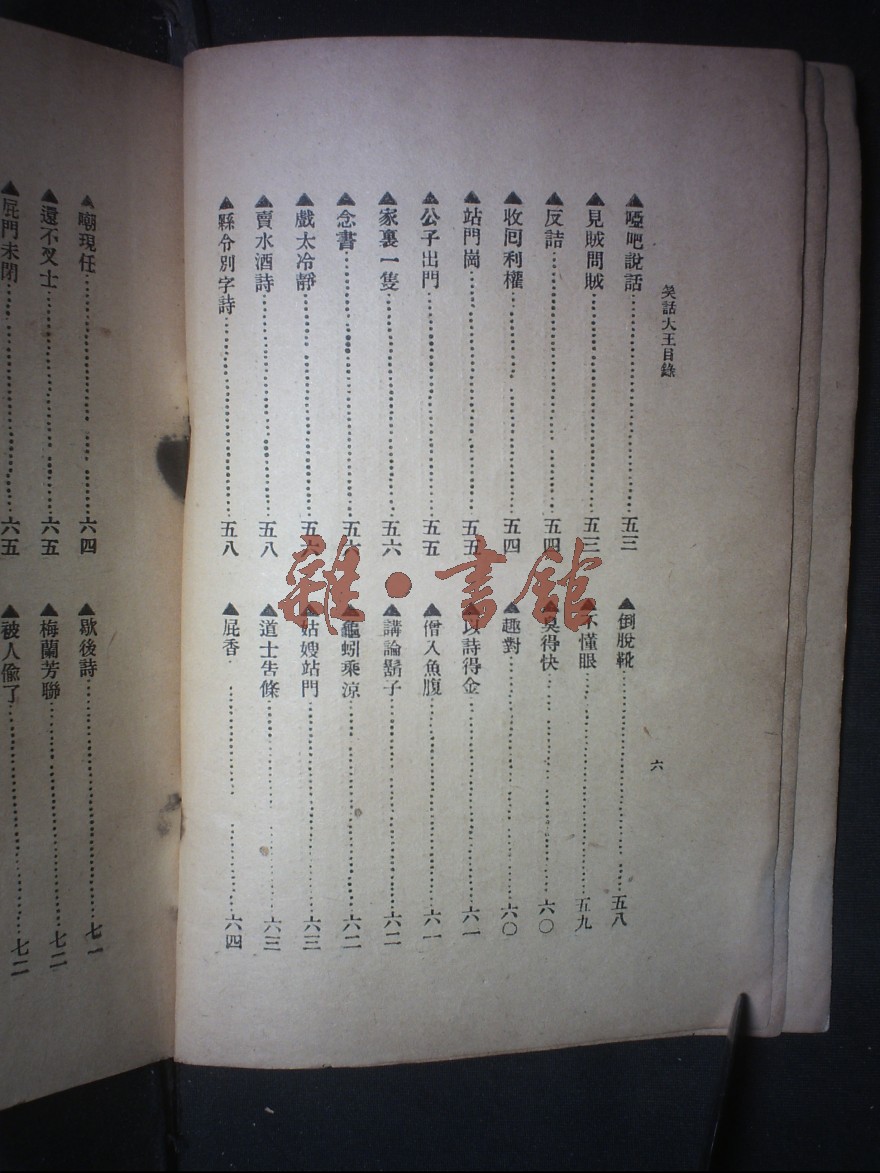 笑話大王目錄
六
▲啞吧說話……五三
▲見賊問賊……五三
▲反詰……五四
▲收回利權……五四
▲站門崗……五五
▲公子出門……五五
▲家裏一隻……五六
▲念書……五六
▲戲太冷靜……五六
▲賣水酒詩……五八
▲縣令別字詩……五八
▲倒脫靴……五八
▲不懂眼……五九
▲臭得快……六〇
▲趣對……六〇
▲以詩得金……六一
▲僧入魚腹……六一
▲講論鬍子……六二
▲龜蚓乘涼……六二
▲姑嫂站門……六三
▲道士告條……六三
▲屁香……六四
▲嘲現任……六四
▲還不及士……六五
▲屁門未閉……六五
▲歇後詩……七一
▲梅蘭芳聯……七二
▲被人偷了……七二
雜·書館